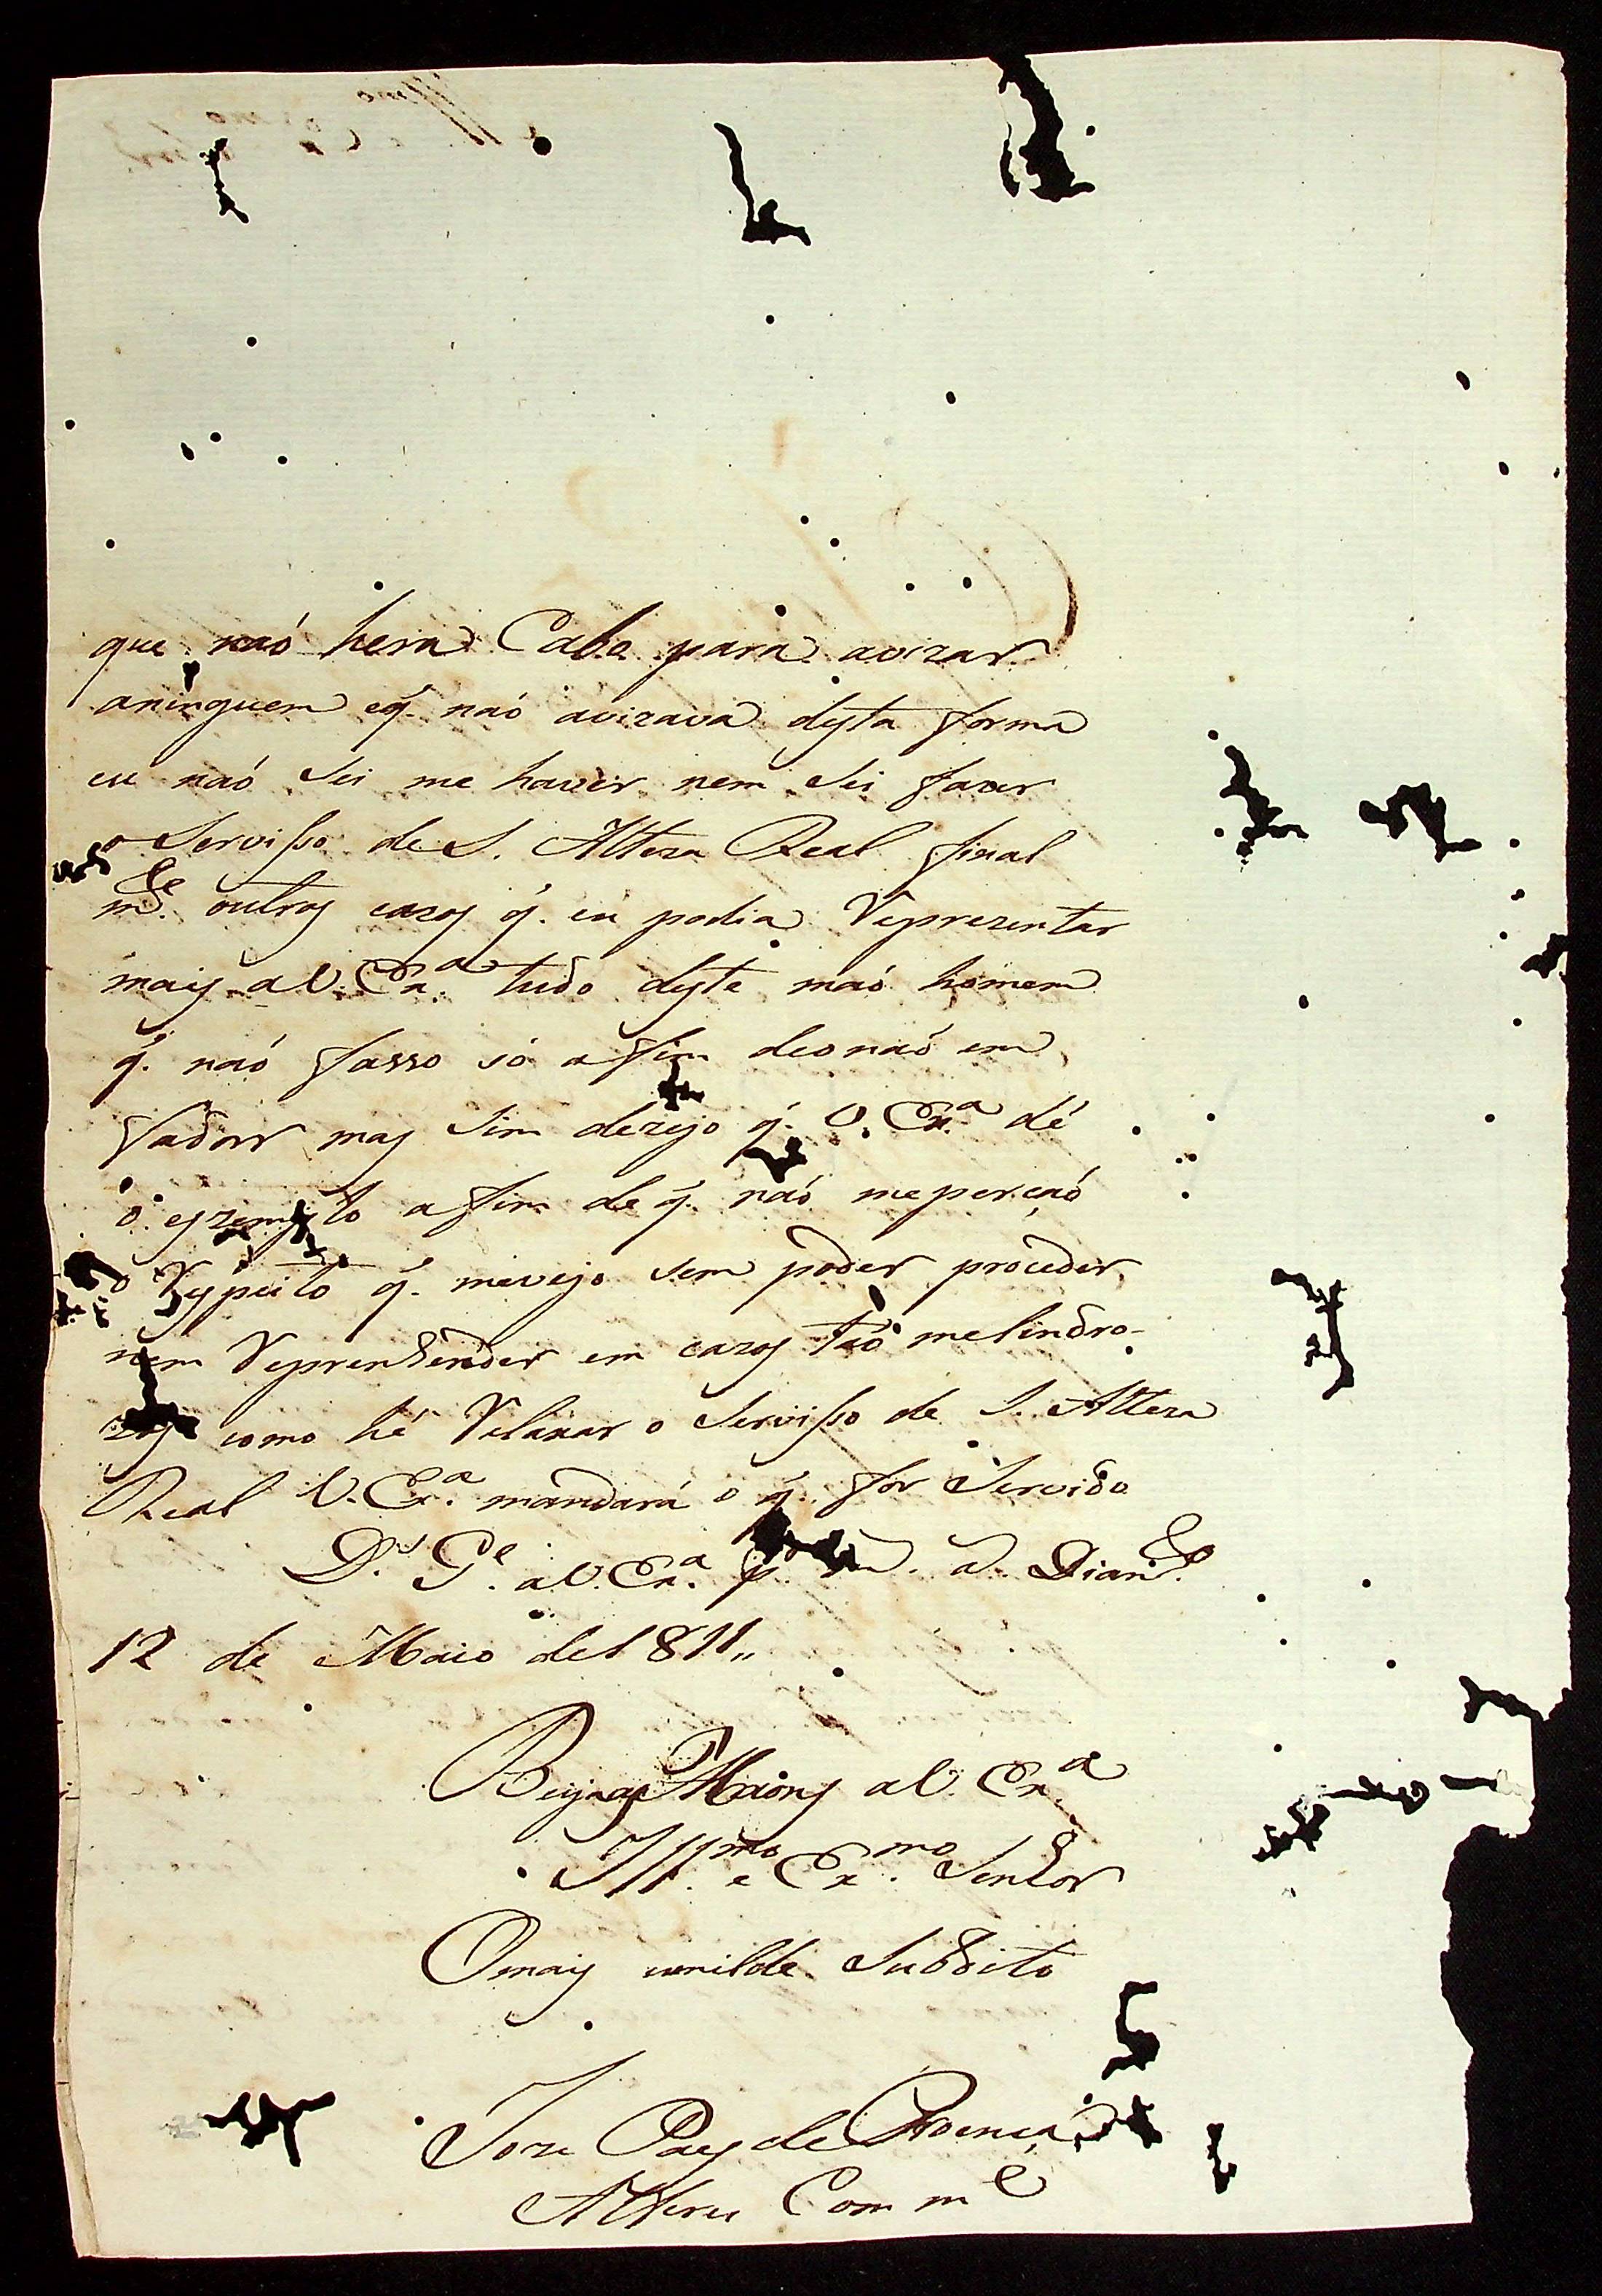 que naó hera Cabo para avizar
aninguem eq̃. naó avizava desta forma
eu naó Sei me haver nem Sei fazer
o Servisso de S. Alteza Real final
m.te outros cazos q̃. eu podia Reprezentar
mais aV. Ex.ª tudo deste maó homem
q̃. naó fasso só afim deonaó em
fadorr mas Sim dezejo q̃. V. Ex.ª dé
o afim de q̃. naó meperçaó
o Respeito q̃. mevejo sem poder proceder
nem Reprenhender em cazos taó melindro-
zos como hé Relaxar o Servisso de S. Alteza
Real V. Ex.ª mandará o q̃. for Servido
D.s G.e aV. Ex.ª
12 de Maio de1811,,
Beija as Maons aV. Ex.ª
Ill.mo e Ex.mo Senhor
Omais umilde Subdito
Joze Paes de Proença
Alferes Com m.e